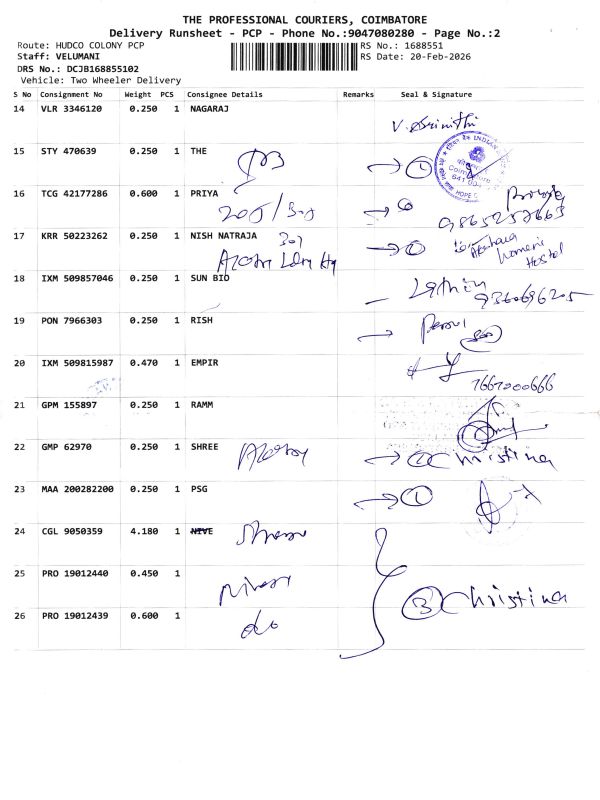 THE PROFESSIONAL COURIERS, COIMBATORE
Delivery Runsheet - PCP - Phone No.:9047080280 - Page No.:2
Route: HUDCO COLONY PCP
RS No.: 1688551
Staff: VELUMANI
RS Date: 20-Feb-2026
DRS No.: DCJB168855102
Vehicle: Two Wheeler Delivery
S No Consignment No Weight PCS Consignee Details Remarks Seal & Signature
14 VLR 3346120 0.250 1 NAGARAJ
V. Srinithi
15 STY 470639 0.250 1 THE
1
INDIAN
641 004
HOPE
16 TCG 42177286 0.600 1 PRIYA
9865257663
17 KRR 50223262 0.250 1 NISH NATRAJA
Akshaya
Womens
Hostel
18 IXM 509857046 0.250 1 SUN BIO
9360696205
19 PON 7966303 0.250 1 RISH
20 IXM 509815987 0.470 1 EMPIR
7667200666
21 GPM 155897 0.250 1 RAMM
22 GMP 62970 0.250 1 SHREE
1 Christina
23 MAA 200282200 0.250 1 PSG
1
24 CGL 9050359 4.180 1 NIVE
25 PRO 19012440 0.450 1
3 Christina
26 PRO 19012439 0.600 1
do